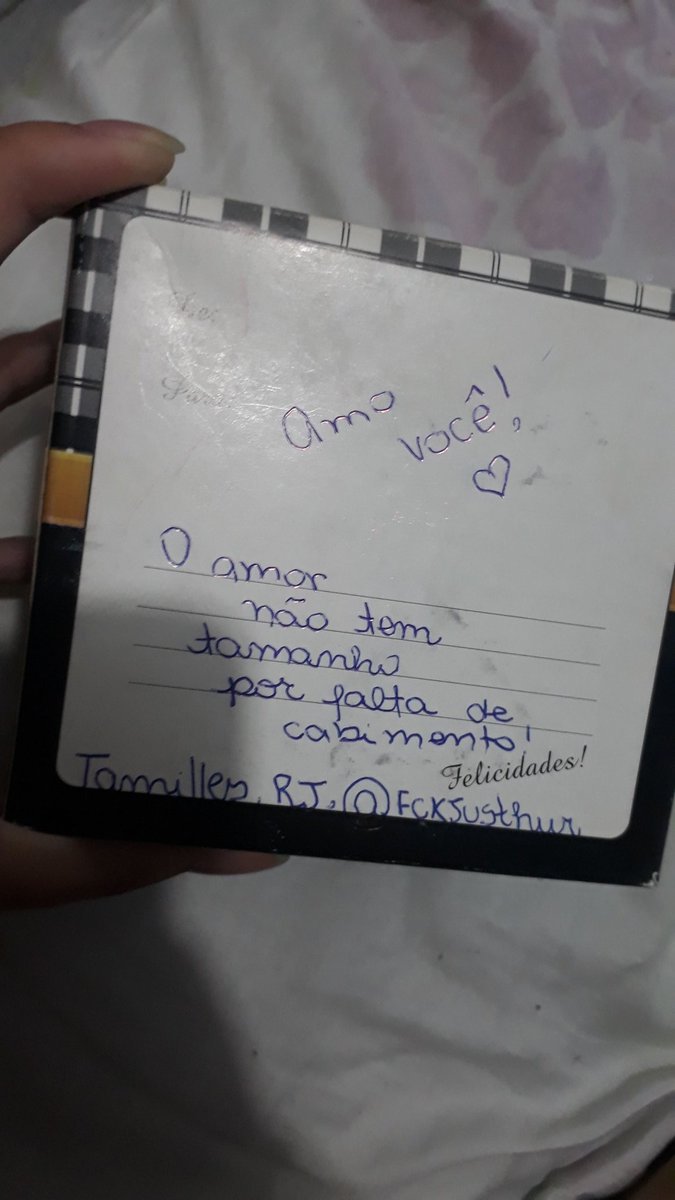 De:
Para:
amo você!
O amor
não tem
tamanho
por falta de
cabimento!
Felicidades!
Tamilles, RJ, @FCKJusthur